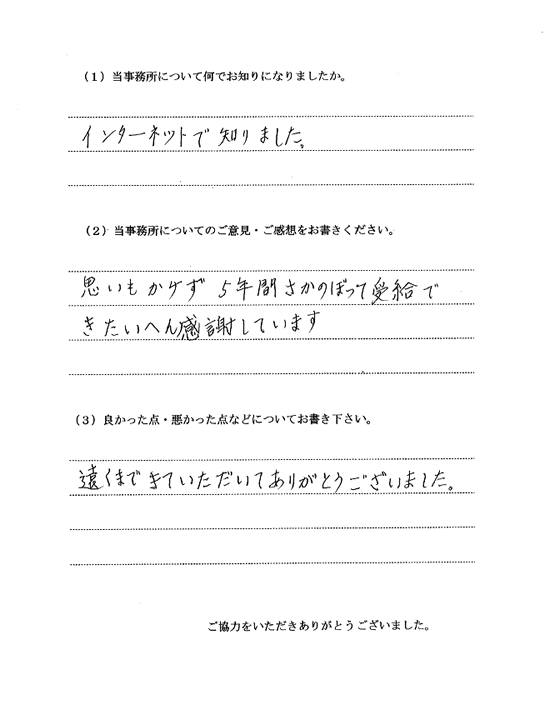 （1）当事務所について何でお知りになりましたか。
インターネットで知りました。
（2）当事務所についてのご意見・ご感想をお書きください。
思いもかけず 5年間さかのぼって受給で
きたいへん感謝しています
（3）良かった点・悪かった点などについてお書き下さい。
遠くまできていただいてありがとうございました。
ご協力をいただきありがとうございました。